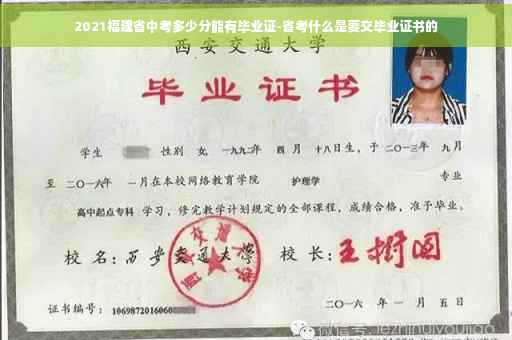 2021福建省中考多少分能有毕业证-省考什么是要交毕业证书的
西安交通大学
毕业证书
学生 性别 女, 一九九二年 四月 十八日生, 于 二〇一三年 九月
至 二〇一六年 一月在本校网络教育学院 护理学 专业
高中起点专科 学习, 修完教学计划规定的全部课程, 成绩合格, 准予毕业。
校名: 西安交通大学 校长: 王树国
西安交通大学
证书编号: 1069872016060
二〇一六年 一月 五日
微信号: jiezhihuiyoujiao